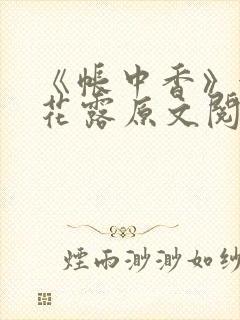 《帐中香》
花露原文阅
煙雨渺渺如纱